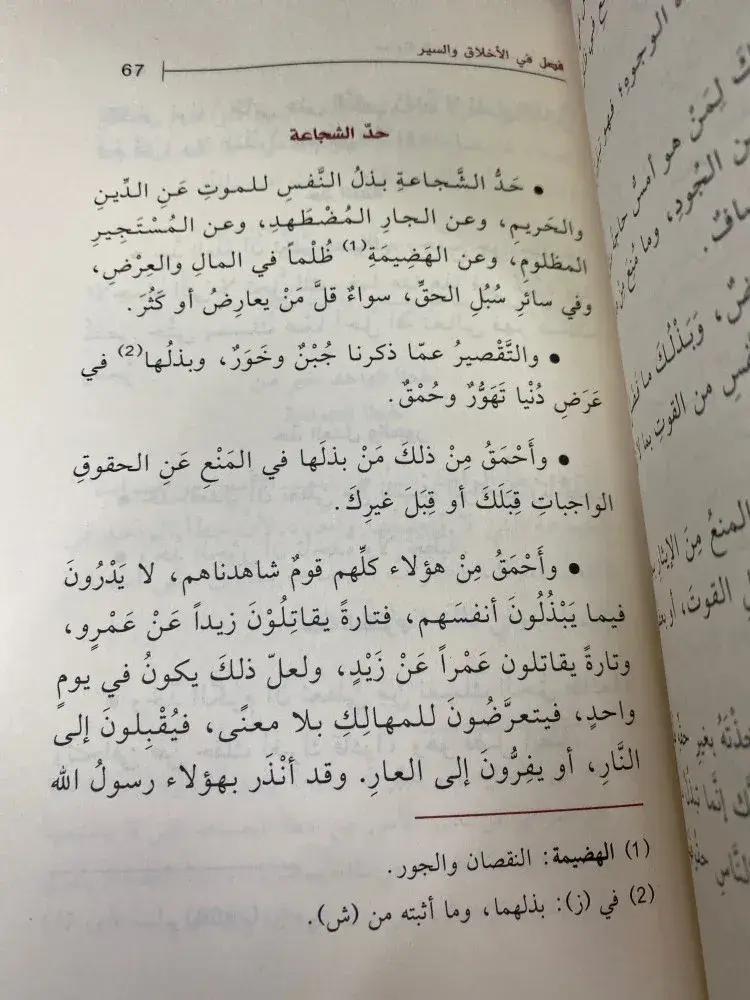 فصل في الأخلاق والسير
67
حدّ الشجاعة
• حَدُّ الشَّجاعةِ بذلُ النَّفسِ للموتِ عَنِ الدِّينِ
والحَريمِ، وعن الجارِ المُضْطَهدِ، وعن المُسْتَجِيرِ
المظلومِ، وعن الهَضِيمَةِ(1) ظُلْماً في المالِ والعِرْضِ،
وفي سائرِ سُبُلِ الحقِّ، سواءٌ قلَّ مَنْ يعارِضُ أو كَثُرَ.
• والتَّقْصيرُ عمّا ذكرنا جُبْنٌ وخَوَرٌ، وبذلُها(2) في
عَرَضِ دُنْيا تَهَوُّرٌ وحُمْقٌ.
• وأَحْمَقُ مِنْ ذلكَ مَنْ بذلَها في المَنْعِ عَنِ الحقوقِ
الواجباتِ قِبَلَكَ أو قِبَلَ غيرِكَ.
• وأَحْمَقُ مِنْ هؤلاء كلِّهم قومٌ شاهدناهم، لا يَدْرُونَ
فيما يَبْذُلُونَ أنفسَهم، فتارةً يقاتِلُوْنَ زيداً عَنْ عَمْرٍو،
وتارةً يقاتلون عَمْراً عَنْ زَيْدٍ، ولعلّ ذلكَ يكونُ في يومٍ
واحدٍ، فيتعرَّضُونَ للمهالِكِ بلا معنًى، فيُقْبِلونَ إلى
النَّارِ، أو يفِرُّونَ إلى العارِ. وقد أنْذَر بهؤلاء رسولُ الله
(1) الهضيمة: النقصان والجور.
(2) في (ز): بذلهما، وما أثبته من (ش).
لِمَنْ هو أمسُّ
الجُودِ، وما مُنِعَ
وَبَذْلُكَ ما
من القوتِ
المنعُ مِنَ
القوتَ، أو
بغيرِ
إنَّما